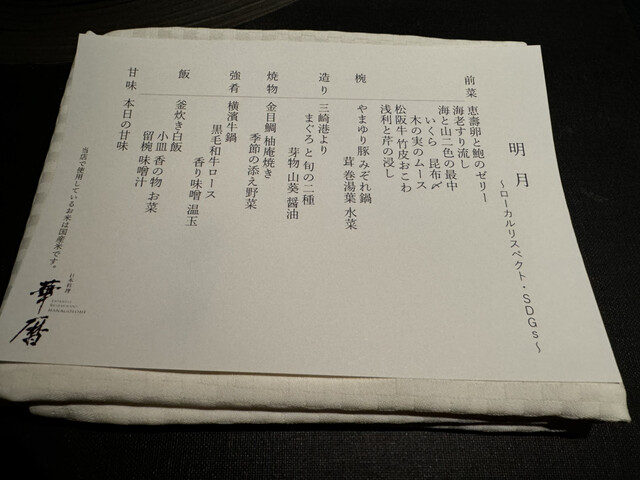 明月
～ローカルリスペクト・SDGs～
前菜 恵壽卵と鮑のゼリー
海老すり流し
海と山二色の最中
いくら 昆布〆
木の実のムース
松阪牛 竹皮おこわ
浅利と芹の浸し
椀 やまゆり豚 みぞれ鍋
茸 巻湯葉 水菜
造り 三崎港より
まぐろと旬の二種
芽物 山葵 醤油
焼物 金目鯛 柚庵焼き
季節の添え野菜
強肴 横濱牛鍋
黒毛和牛ロース
香り味噌 温玉
飯 釜炊き白飯
小皿 香の物 お菜
留椀 味噌汁
甘味 本日の甘味
当店で使用しているお米は国産米です。
日本料理
華暦